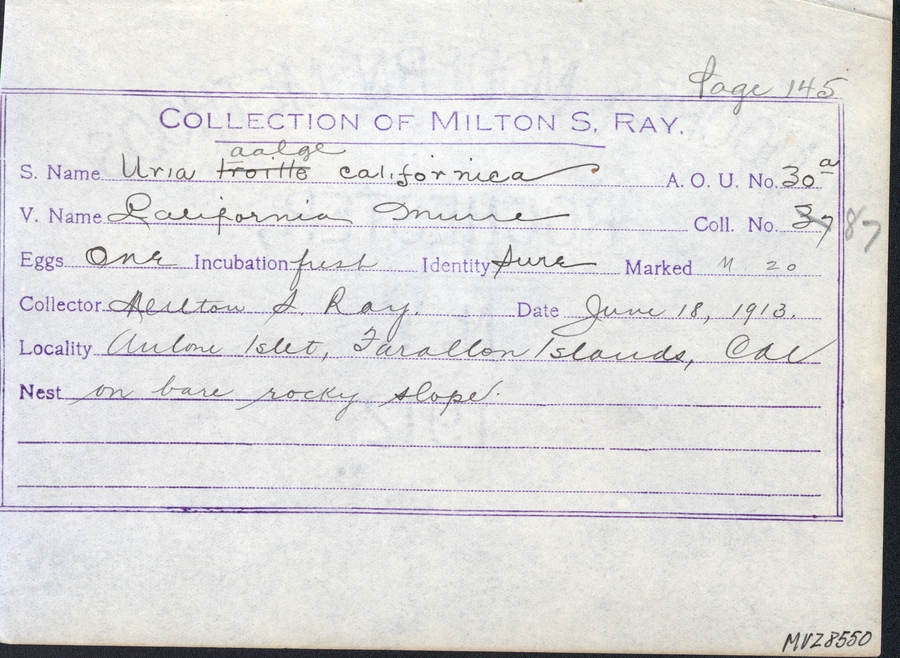 Page 145
COLLECTION OF MILTON S. RAY.
aalge
S. Name Uria troille californica A. O. U. No. 30a
V. Name California Murre Coll. No. 37 87
Eggs One Incubation fresh Identity Sure Marked M 20
Collector Milton S. Ray. Date June 18, 1913.
Locality Islet, Farallon Islands, Cal
Nest on bare rocky slope.
MVZ8550